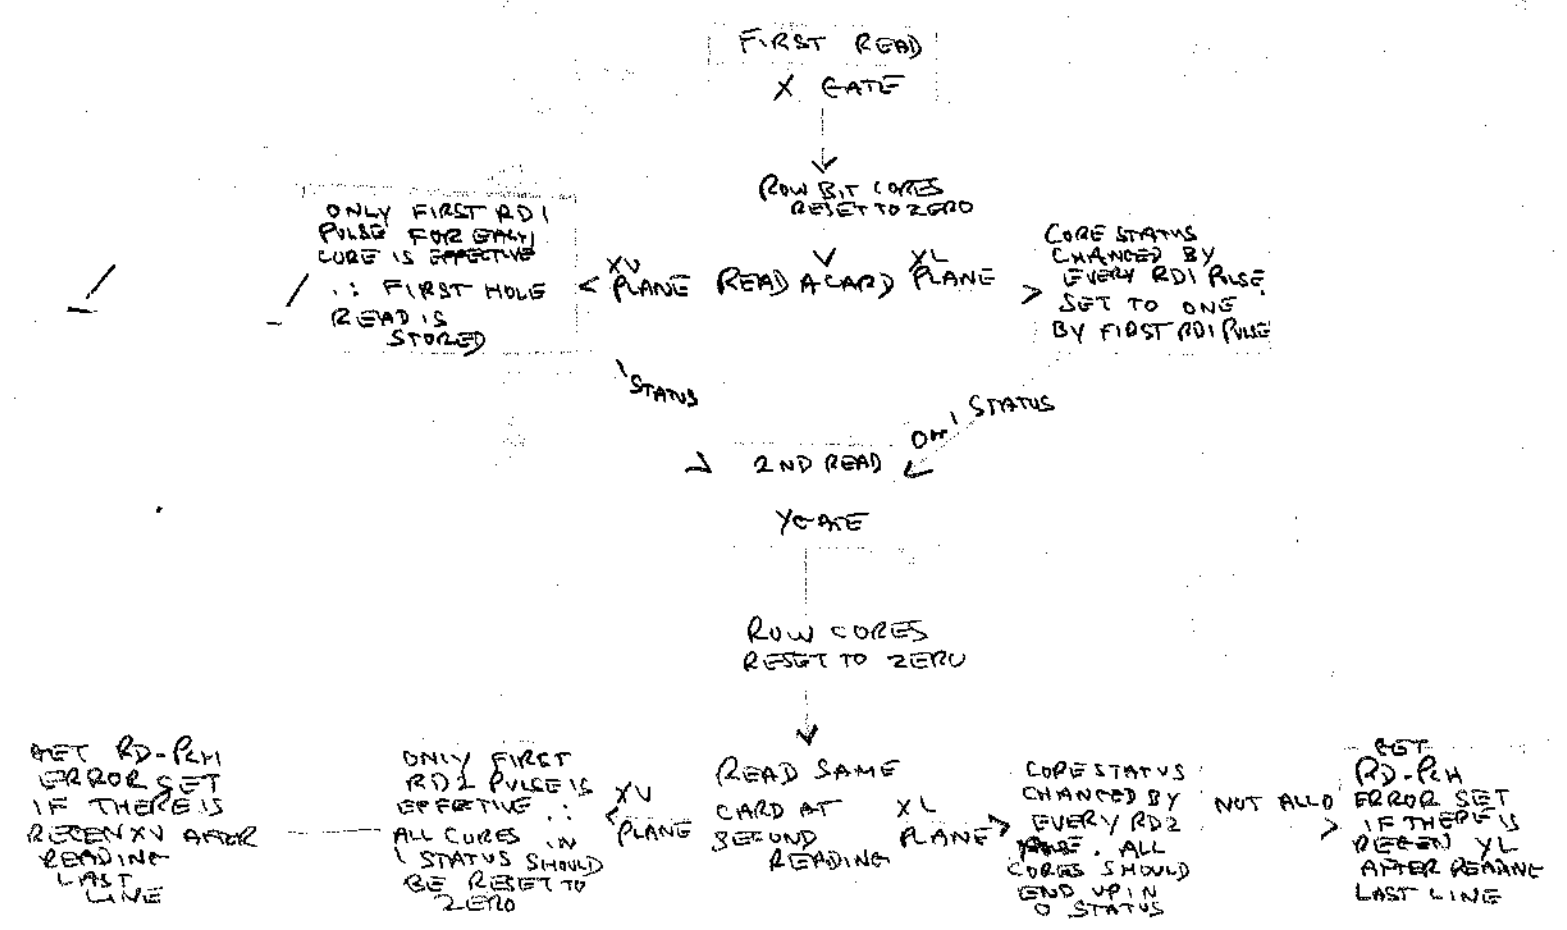 FIRST READ
X GATE
ROW BIT CORES
RESET TO ZERO
ONLY FIRST RD1
PULSE FOR EACH
CORE IS EFFECTIVE
∴ FIRST HOLE
READ IS
STORED
XU
PLANE
READ A CARD
XL
PLANE
CORE STATUS
CHANGED BY
EVERY RD1 PULSE
SET TO ONE
BY FIRST RD1 PULSE
1 STATUS
OR 1 STATUS
2ND READ
Y GATE
ROW CORES
RESET TO ZERO
GET RD-PCH
ERROR SET
IF THERE IS
REGEN XU AFTER
READING
LAST
LINE
ONLY FIRST
RD2 PULSE IS
EFFECTIVE ∴
ALL CORES IN
1 STATUS SHOULD
BE RESET TO
ZERO
XU
PLANE
READ SAME
CARD AT
SECOND
READING
XL
PLANE
CORE STATUS
CHANGED BY
EVERY RD2
PULSE. ALL
CORES SHOULD
END UP IN
0 STATUS
NOT ALL 0
GET
RD-PCH
ERROR SET
IF THERE IS
REGEN YL
AFTER READING
LAST LINE